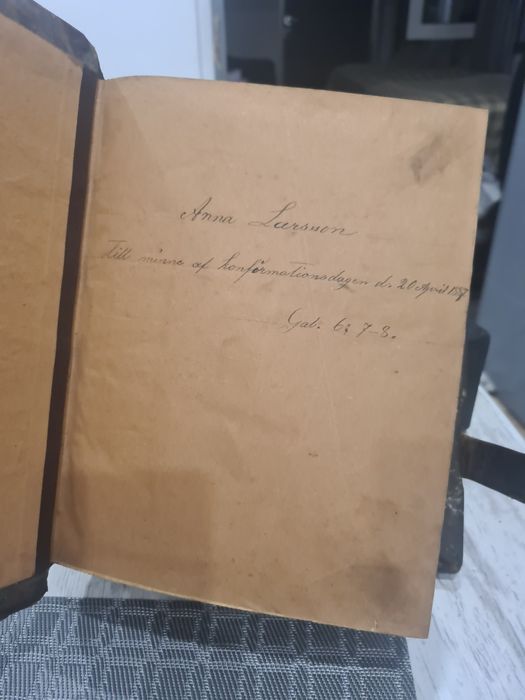 Anna Larsson
till minne af konfirmationsdagen d. 20 April 1887
Gal. 6: 7-8.